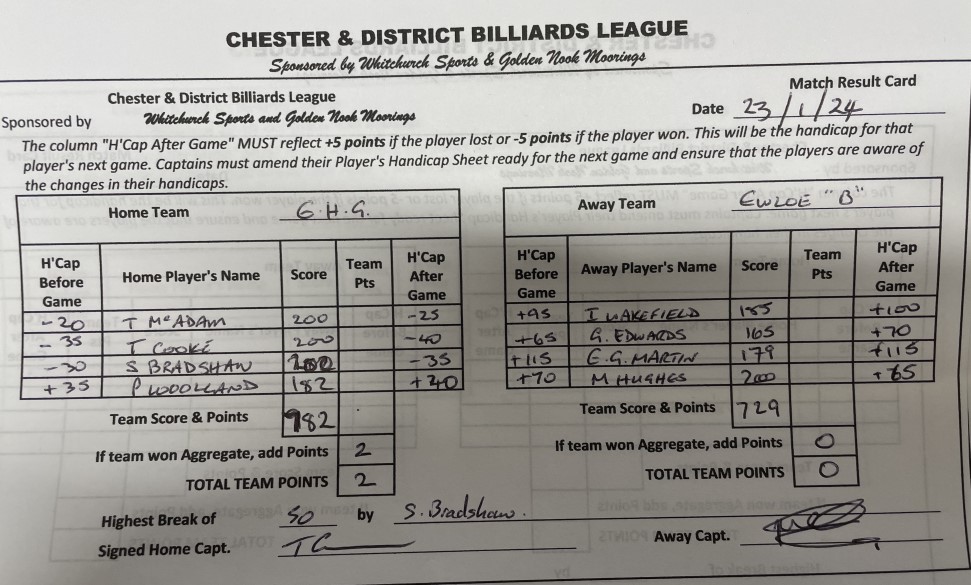 CHESTER & DISTRICT BILLIARDS LEAGUE
Sponsored by Whitchurch Sports & Golden Nook Moorings
Match Result Card
Chester & District Billiards League
Date 23/1/24
Sponsored by Whitchurch Sports and Golden Nook Moorings
The column "H'Cap After Game" MUST reflect +5 points if the player lost or -5 points if the player won. This will be the handicap for that
player's next game. Captains must amend their Player's Handicap Sheet ready for the next game and ensure that the players are aware of
the changes in their handicaps.
Home Team G.H.G.
H'Cap Before Game Home Player's Name Score Team Pts H'Cap After Game
-20 T McADAM 200 -25
-35 T COOKE 200 -40
-30 S BRADSHAW 200 -35
+35 P WOOLLAND 182 +40
Team Score & Points 782
If team won Aggregate, add Points 2
TOTAL TEAM POINTS 2
Away Team EWLOE "B"
H'Cap Before Game Away Player's Name Score Team Pts H'Cap After Game
+95 I WAKEFIELD 185 +100
+65 G. EDWARDS 165 +70
+115 E.G. MARTIN 179 +115
+70 M HUGHES 200 +65
Team Score & Points 729
If team won Aggregate, add Points 0
TOTAL TEAM POINTS 0
Highest Break of 50 by S. Bradshaw.
Signed Home Capt. TC
Away Capt.